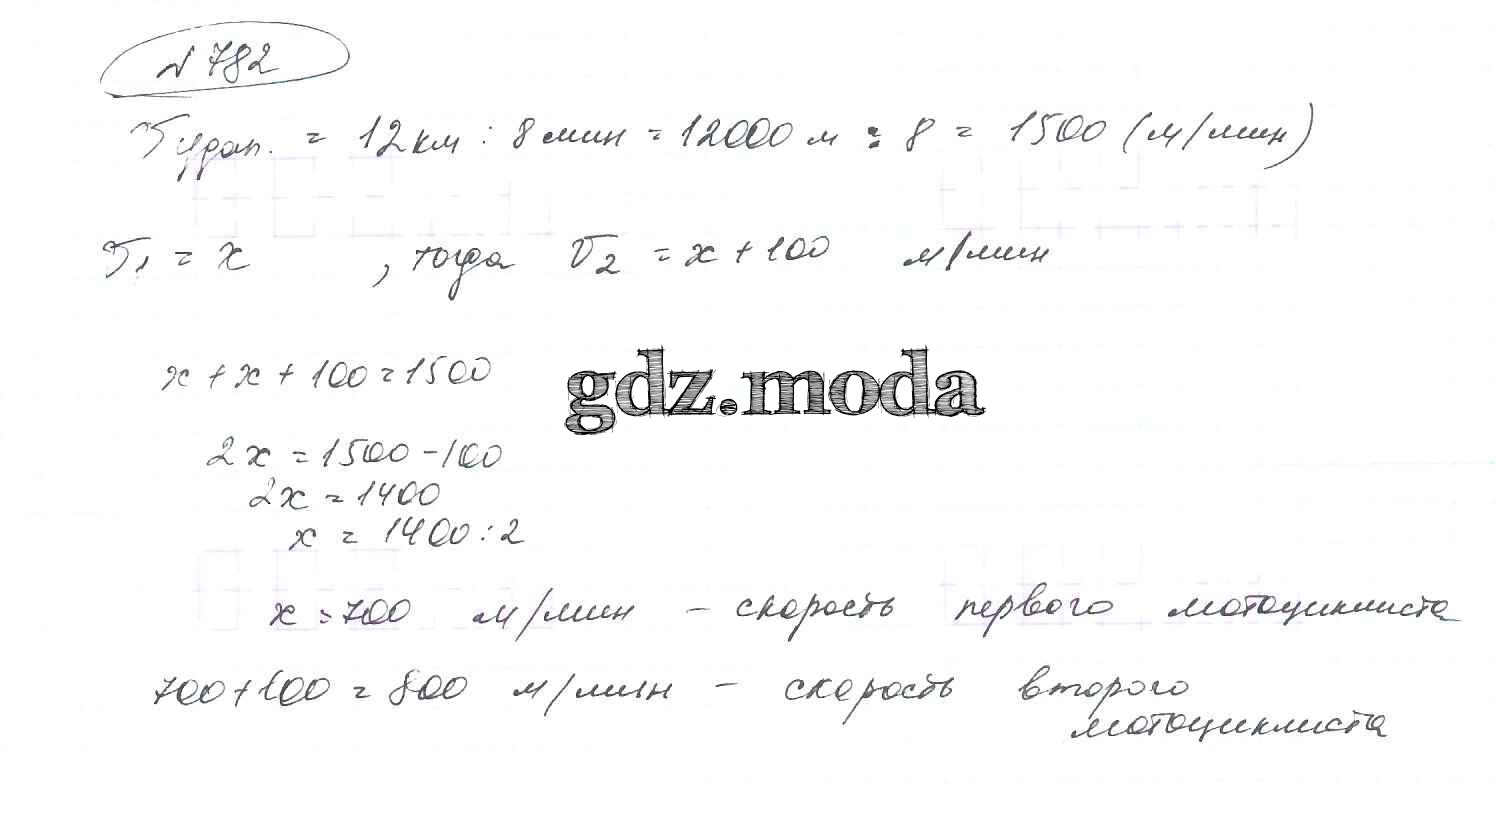 № 782
Vудал. = 12 км : 8 мин = 12000 м : 8 = 1500 (м/мин)
V₁ = x , тогда V₂ = x + 100 м/мин
x + x + 100 = 1500
gdz.moda
2x = 1500 - 100
2x = 1400
x = 1400 : 2
x = 700 м/мин - скорость первого мотоциклиста
700 + 100 = 800 м/мин - скорость второго
мотоциклиста